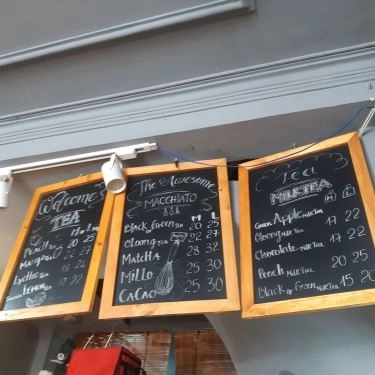 Welcome
TEA
M L
Peach Tea 20 25
Mango Tea 22 27
Lychee Tea 18 22
Lemon Tea 22
The Awesome
MACCHIATO
M L
Black or Green Tea 20 25
Oolong Tea 22 27
MatcHA 28 32
Millo 25 30
CaCAO 25 30
Tea
MILKTEA
Green Apple MilkTea 17 22
Oolong MilkTea 17 22
Chocolate MilkTea 17 22
Peach MilkTea 20 25
Black or Green MilkTea 15 20